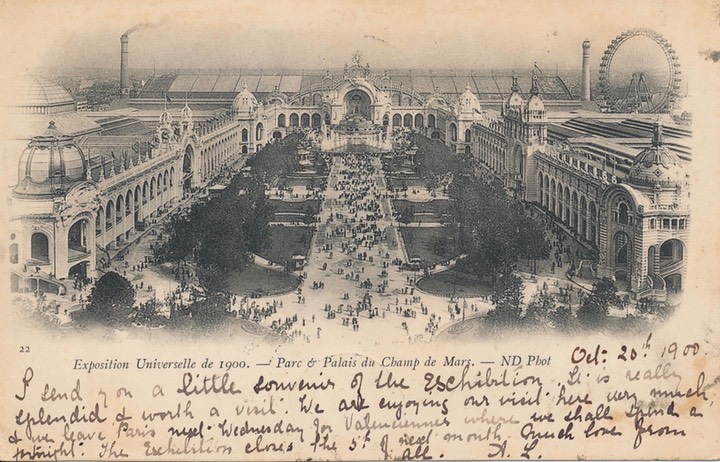 22
Exposition Universelle de 1900. — Parc & Palais du Champ de Mars. — ND Phot
Oct. 20th 1900.
I send you a little souvenir of the Exchibition. It is really
splendid & worth a visit. We are enjoying our visit here very much
& we leave Paris next Wednesday for Valenciennes where we shall spend a
fortnight. The Exchibition closes the 5th of next month. Much love from
all. A. L.